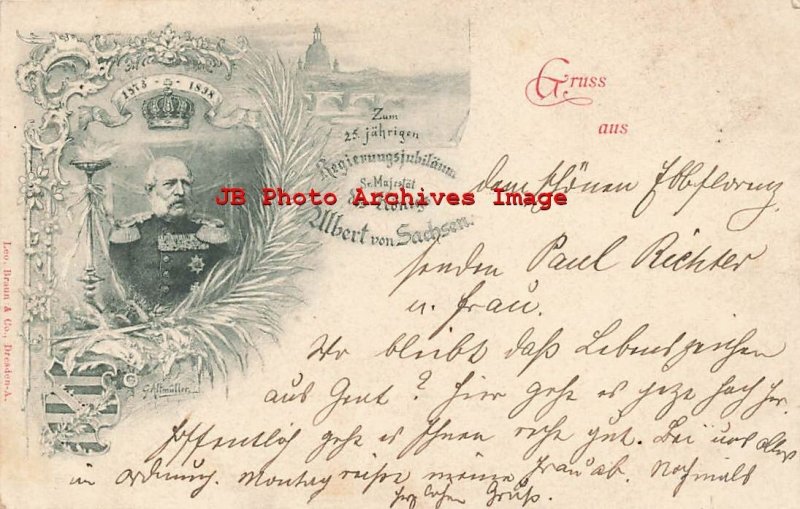 1873 - 1898
Zum
25. jährigen
Regierungsjubiläum
Sr. Majestät
des Königs
Albert von Sachsen.
JB Photo Archives Image
Gruss
aus
dem schönen Elbflorenz
senden Paul Richter
u. Frau.
Wo bleibt daß Lebenszeichen
aus Gent? Hier geht es jetzt hoch her.
Hoffentlich geht es Ihnen recht gut. Bei uns alles
in Ordnung. Montag reist meine Frau ab. Nochmals
herzlichen Gruß.
Leo. Braun & Co., Dresden-A.